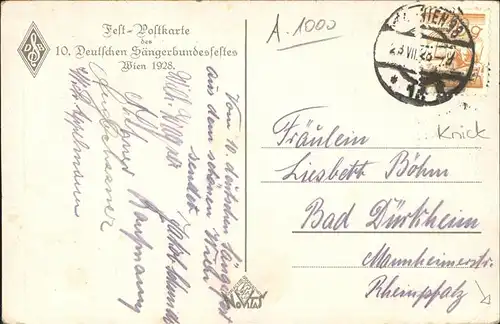 Fest-Postkarte
des
10. Deutschen Sängerbundesfestes
Wien 1928.
A. 1000
WIEN
23 VII 28
Knick
Vom 10. deutschen Sängerfest
aus dem schönen Wien
sendet
Will. Wagner
Kaufmann
Fräulein
Liesbett Böhm
Bad Dürkheim
Mannheimerstr.
Rheinpfalz
NOVITAS